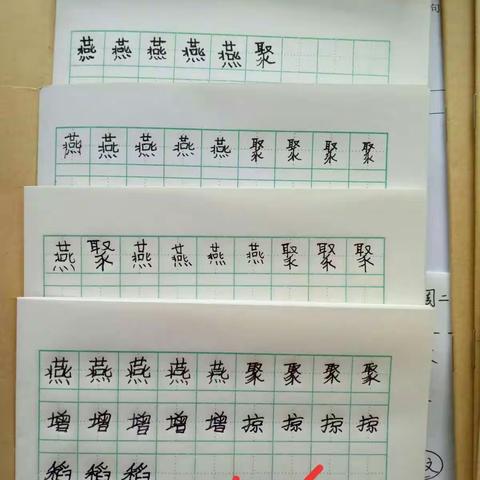 句
燕燕燕燕燕聚
燕燕燕燕燕聚聚聚聚
燕聚燕燕燕燕聚聚聚
燕燕燕燕燕聚聚聚聚
增增增增增掠掠掠掠
稻稻稻